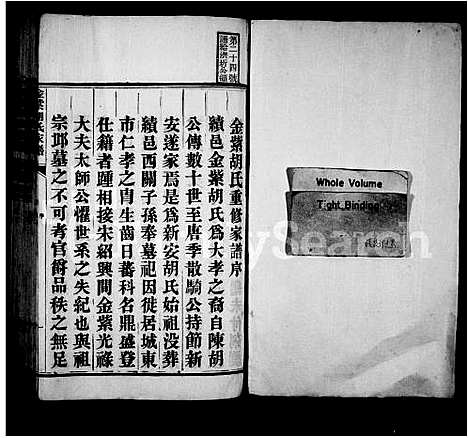 第二十四號
金紫胡氏重修家譜序
績邑金紫胡氏為大孝之裔自陳胡
公傳數十世至唐季散騎公持節新
安遂家焉是為新安胡氏始祖沒葬
績邑西關子孫奉墓祀因徙居城東
市仁孝之自生齒日蕃科名鼎盛登
仕籍者踵相接宋紹興間金紫光祿
大夫太師公懼世系之失紀也與祖
宗邱墓之不可考官爵品秩之無足
Whole Volume
Tight Binding